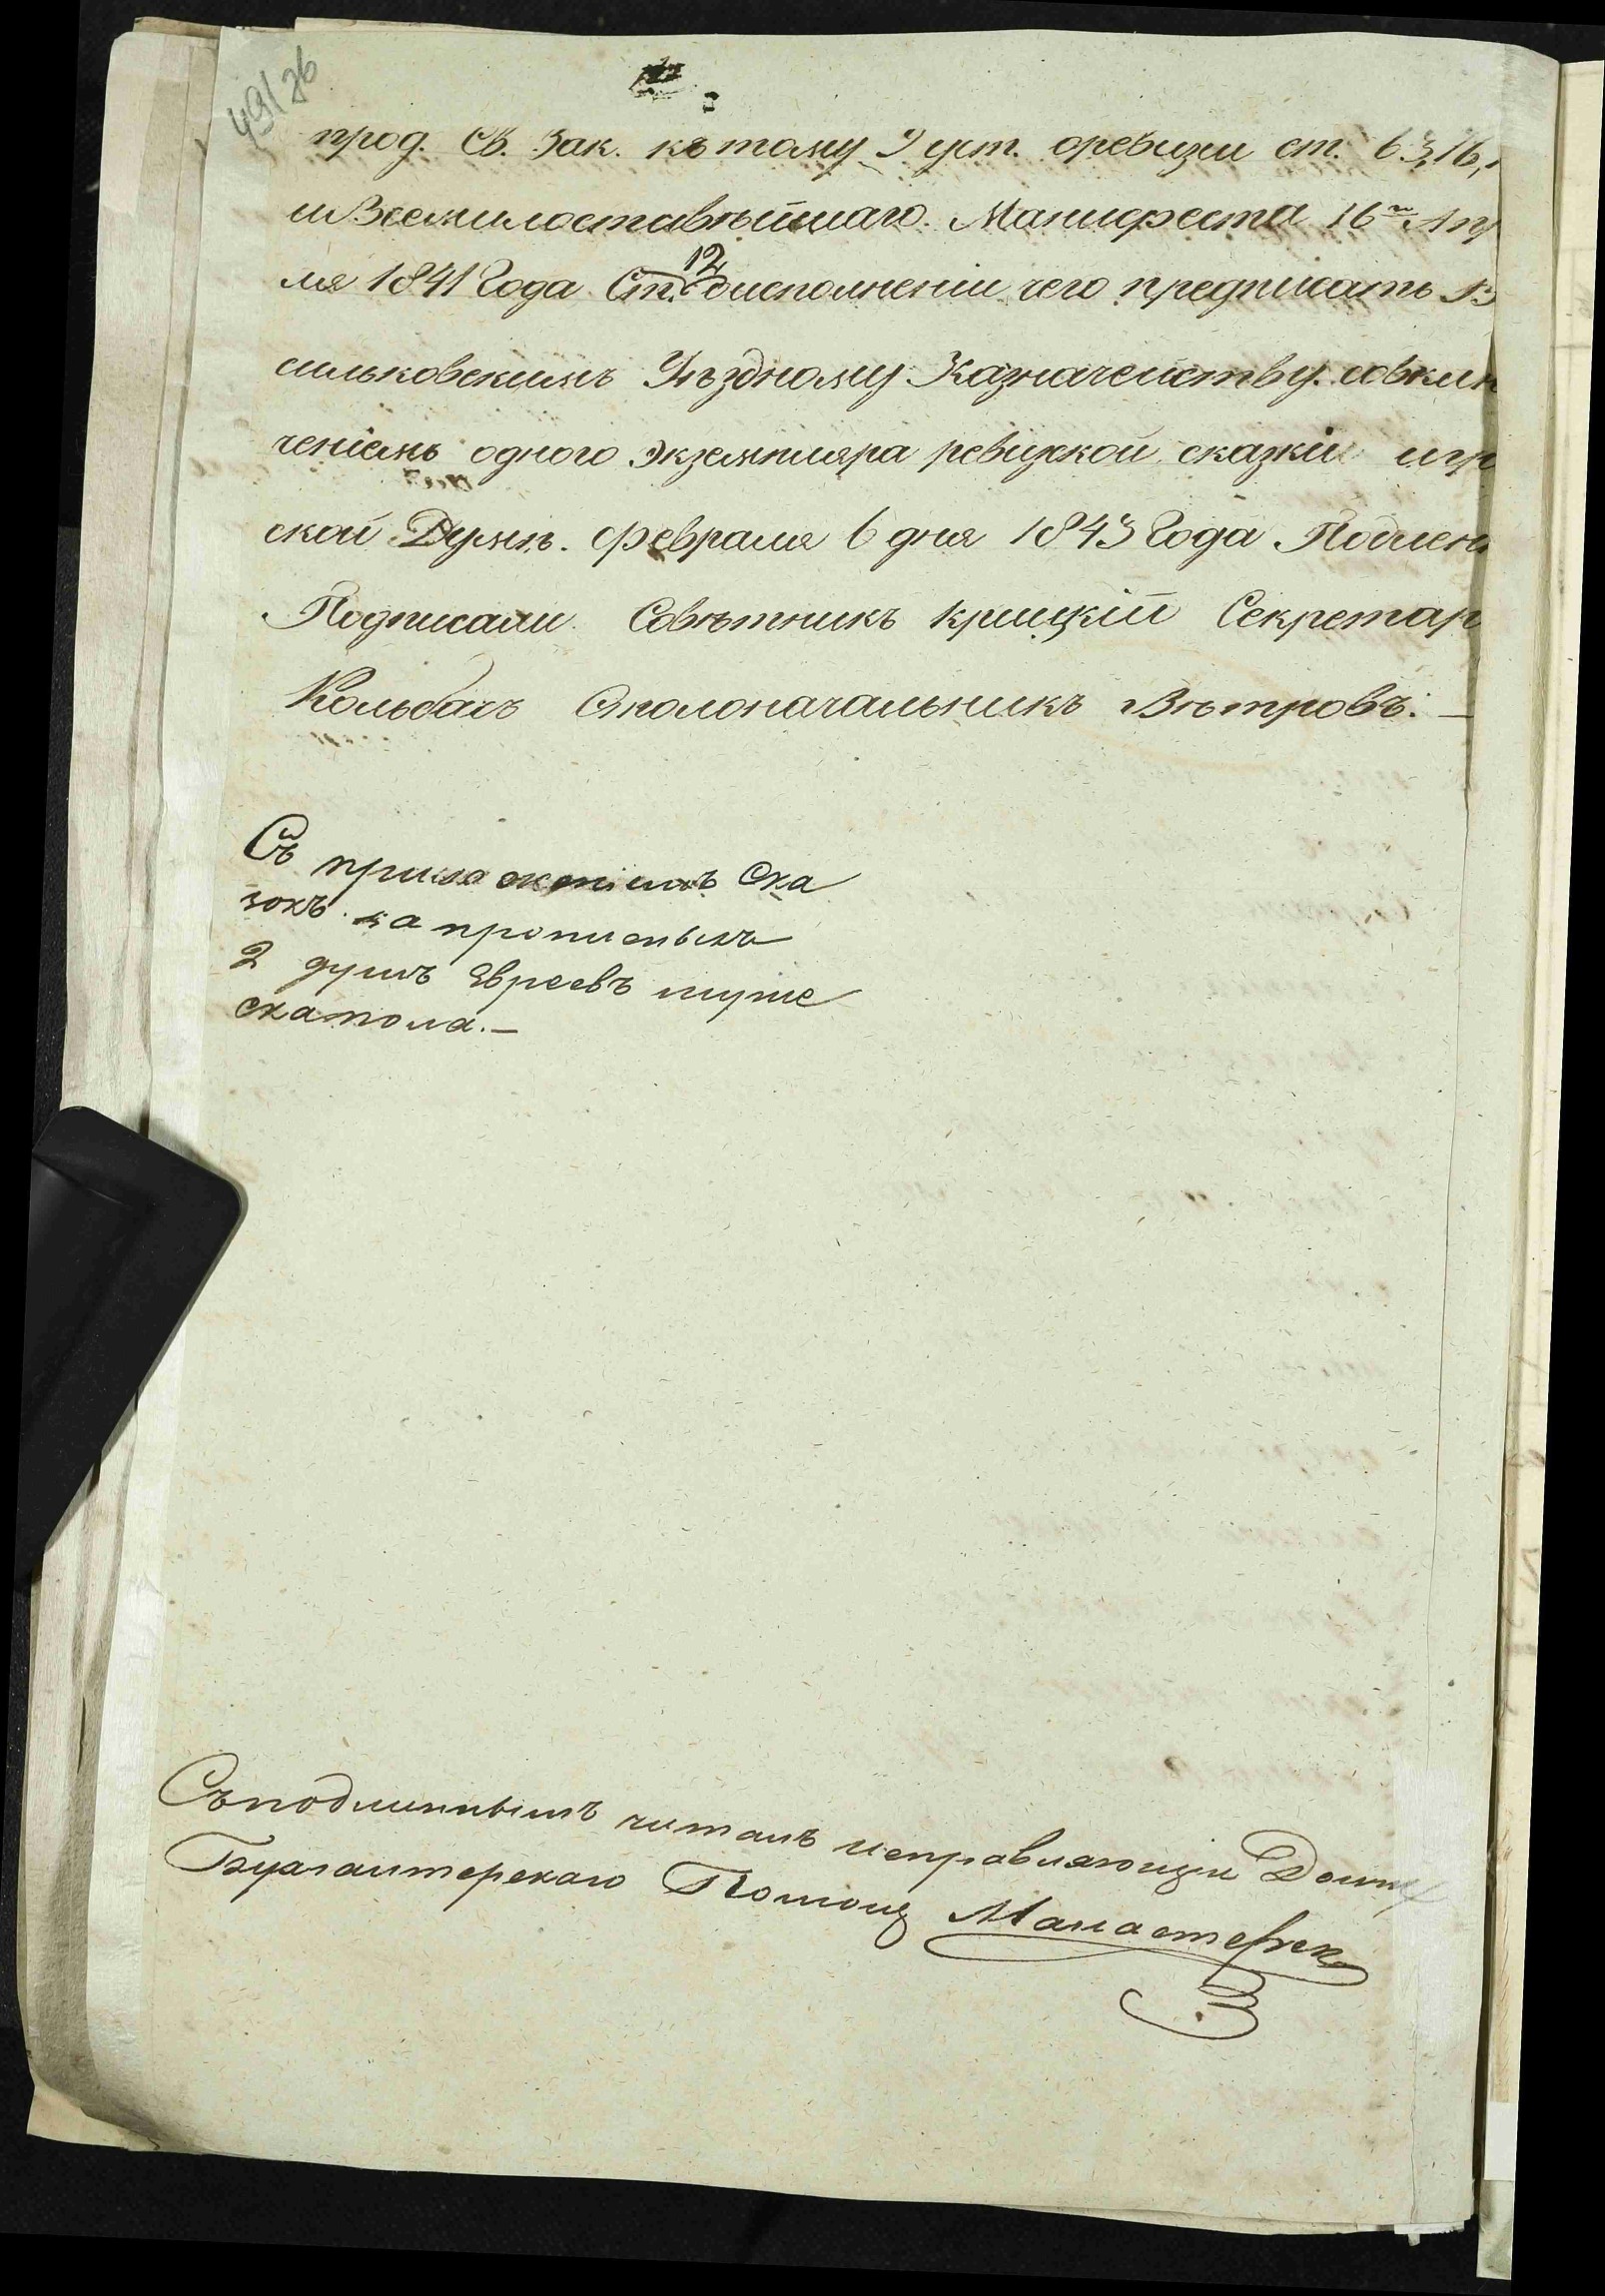 49/26
прод. Св. Зак. къ тому 9 уст. оревизіи ст. 63, 16,
иВсемилоставѣйшаго. Манифеста 16го Апр
ля 1841 Года Ст. 12 Обисполненіи чего предписать В
сильковскимъ Уѣздному Казначейству. совклю
ченіемъ одного экземпляра ревизской сказки игр
ской Думѣ. февраля 6 дня 1843 Года Подлен
Подписали. Совѣтникъ Крицкій Секретар
Кольбасъ Столоначальникъ Вѣтровъ. —
Съ приложеніемъ Ска
зокъ. на прописныхъ
2 душъ Евреевъ муже
ска пола. —
Съподлиннымъ читалъ исправляющій Должн
Бухгалтерскаго Помощ